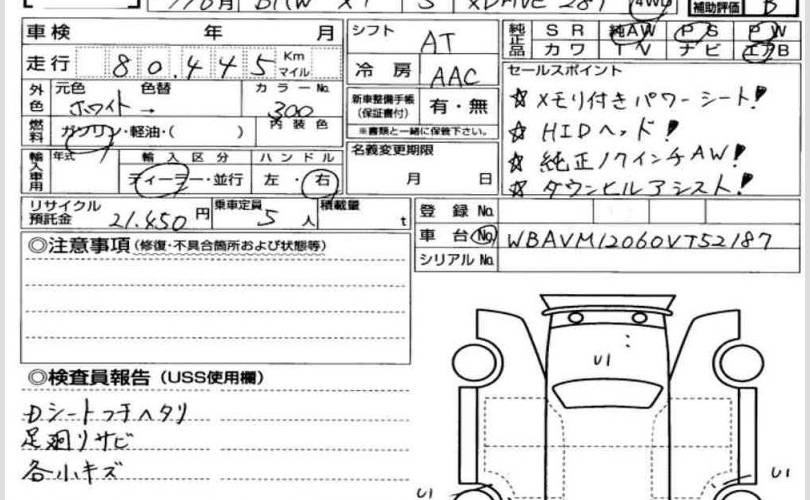 BMW X1 5 XDRIVE 28i 4WD
補助評価 B
車検 年 月
シフト AT
純正品 SR 純AW PS PW
カワ TV ナビ エアB
走行 80,445 Km マイル
冷房 AAC
セールスポイント
外色 元色 色替 カラーNo.
ホワイト → 300
新車整備手帳 (保証書付) 有・無
※書類と一緒に保管下さい。
☆ メモリ付きパワーシート!
燃料 ガソリン・軽油・( ) 内装色
☆ HIDヘッド!
輸入車用 年式 輸入区分 ハンドル
ディーラー・並行 左・右
名義変更期限
月 日
☆ 純正17インチAW!
☆ ダウンヒルアシスト!
リサイクル預託金 21,450円 乗車定員 5人 積載量 t
登録No.
車台No. WBAVM12060VT52187
シリアルNo.
◎注意事項 (修復・不具合箇所および状態等)
◎検査員報告 (USS使用欄)
U1
Dシートフチヘタリ
足廻リサビ
各小キズ
U1 U1